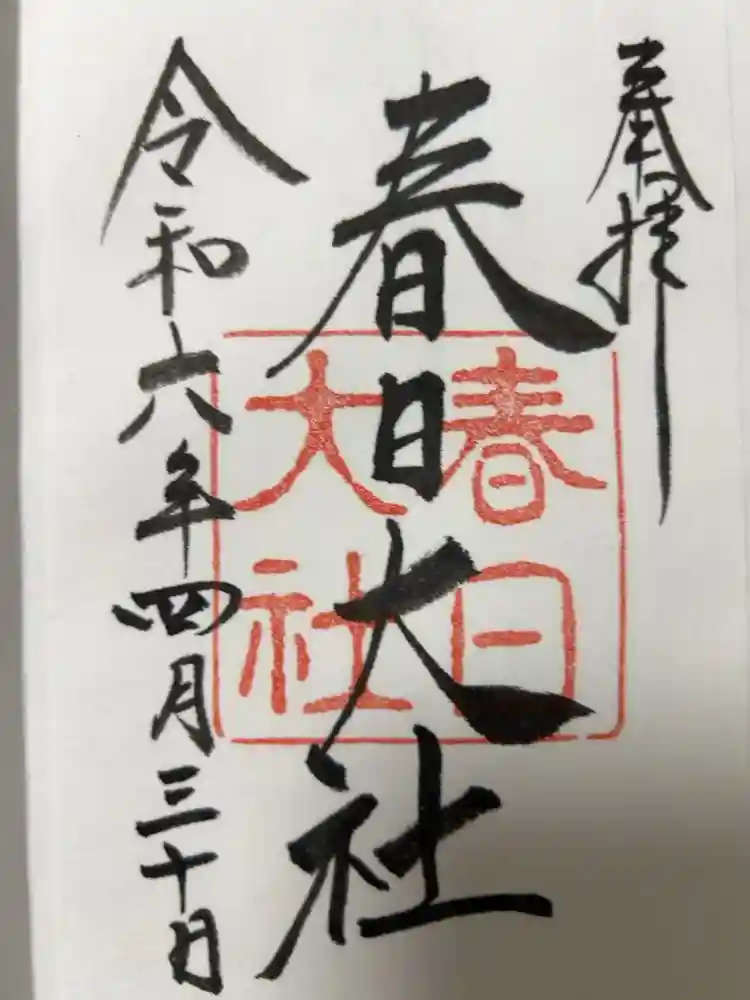 奉拝
春日大社
春日
大社
令和六年四月三十日